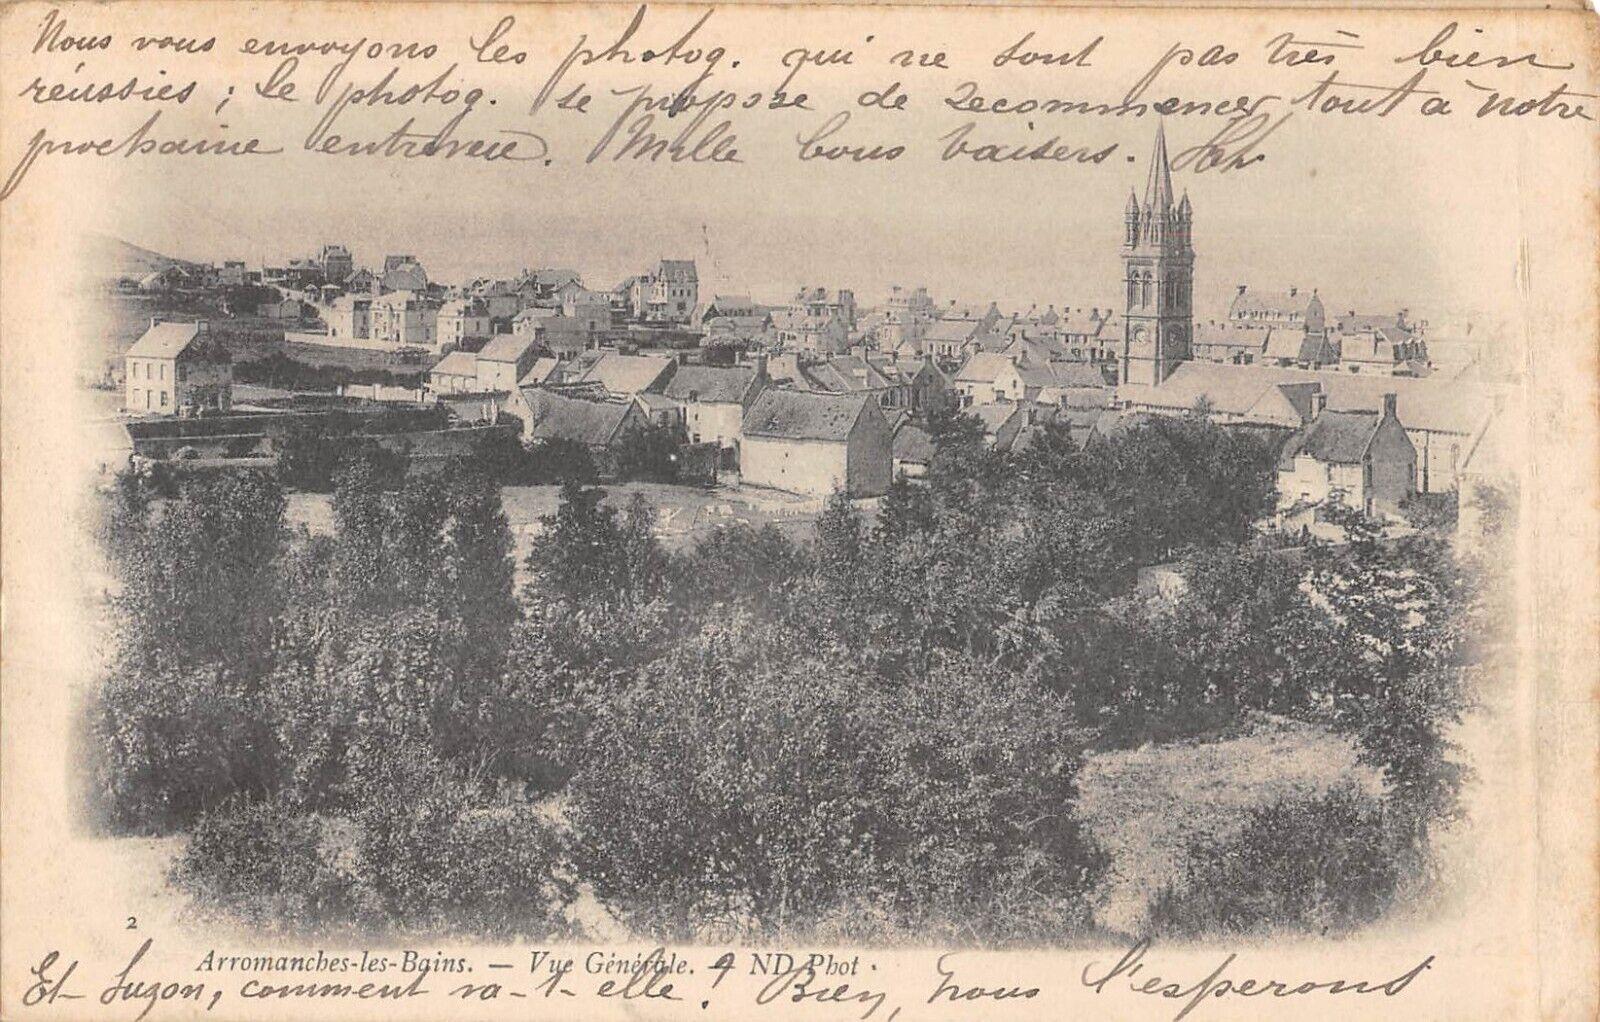 Nous vous envoyons les photog. qui ne sont pas très bien
réussies ; le photog. se propose de recommencer tout à notre
prochaine entrevue. Mille bons baisers.
2
Arromanches-les-Bains. — Vue Générale. — ND Phot.
Et Suzon, comment va-t-elle ? Bien, nous l'espérons